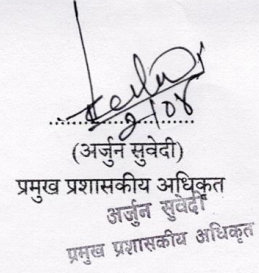 2/08
(अर्जुन सुवेदी)
प्रमुख प्रशासकीय अधिकृत
अर्जुन सुवेदी
प्रमुख प्रशासकीय अधिकृत